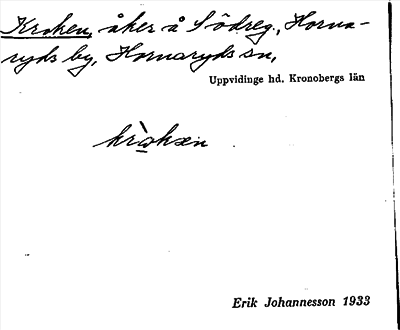 Kroken, åker å Södreg., Horna-
ryds by, Hornaryds sn,
Uppvidinge hd. Kronobergs län
kròkæn
Erik Johannesson 1933